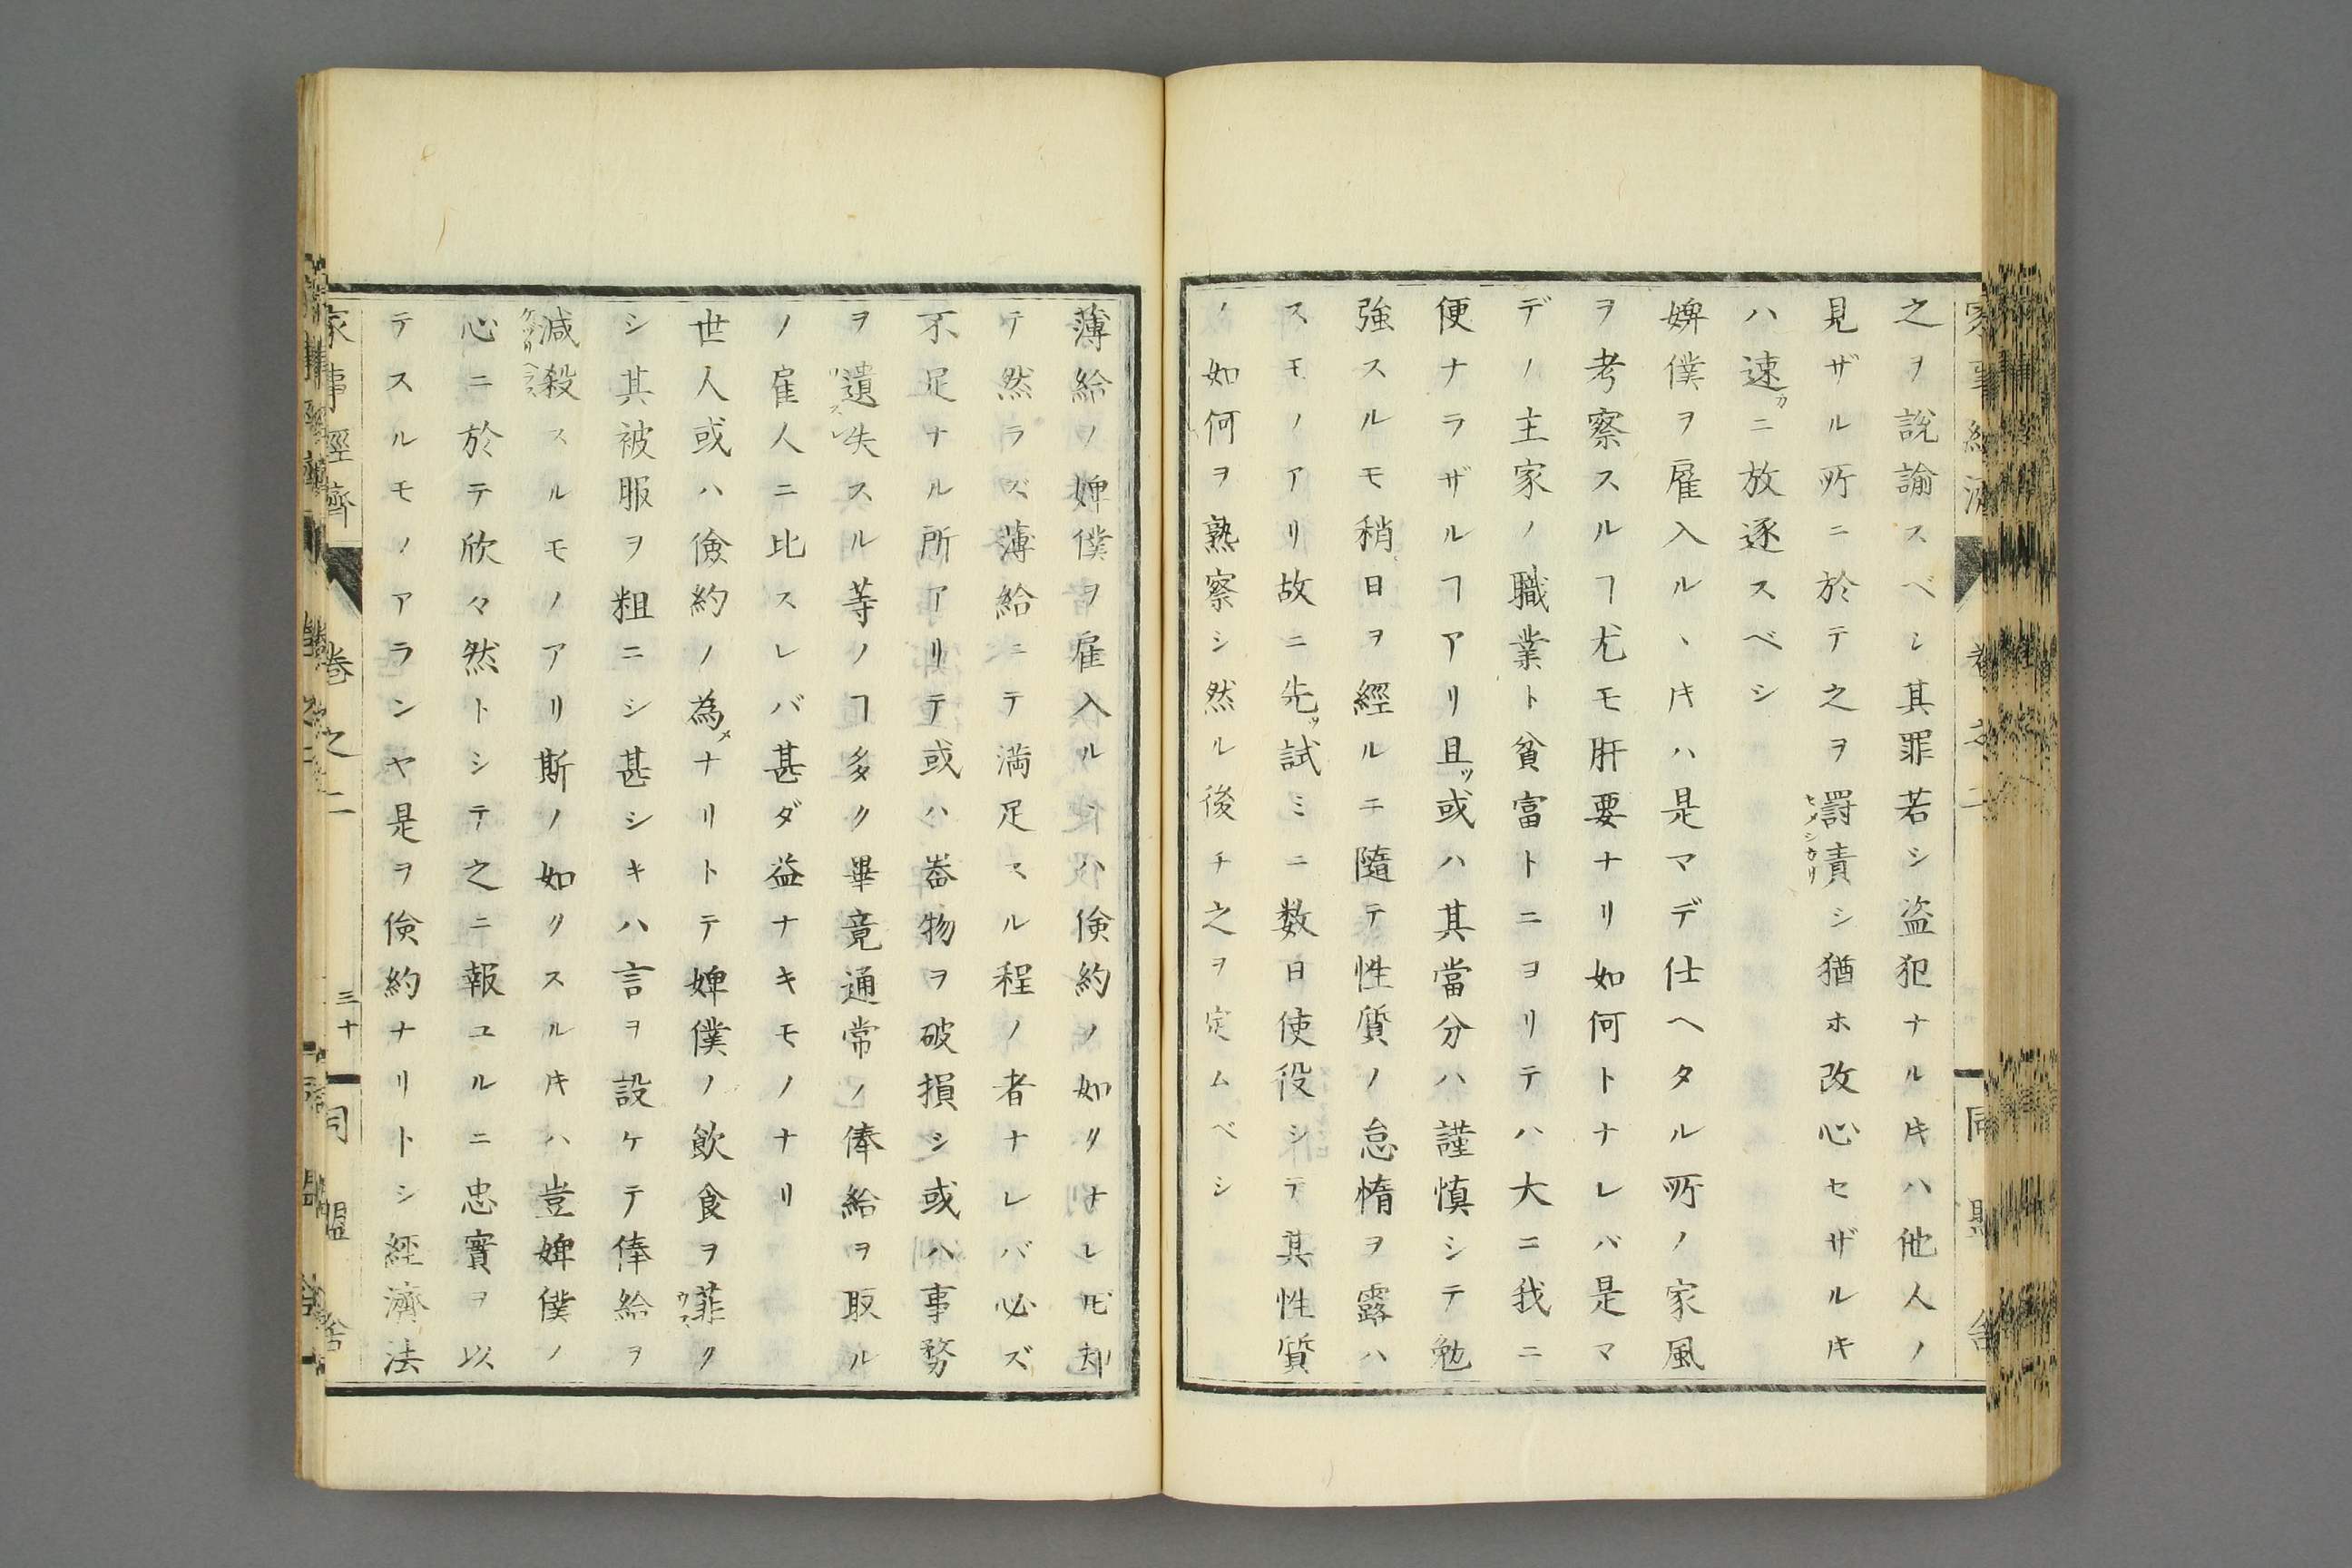 之ヲ說諭スベシ其罪若シ盗犯ナルㇳキハ他人ノ
見ザル所ニ於テ之ヲ罸責シ猶ホ改心セザルㇳキ
セメシカリ
ハ速カニ放逐スベシ
婢僕ヲ雇入ルヽㇳキハ是マデ仕ヘタル所ノ家風
ヲ考察スルヿ尤モ肝要ナリ如何トナレバ是マ
デノ主家ノ職業ト貧富トニヨリテハ大ニ我ニ
便ナラザルヿアリ且ッ或ハ其當分ハ謹慎シテ勉
強スルモ稍〻日ヲ經ルニ隨テ性質ノ怠惰ヲ露ハ
スモノアリ故ニ先ッ試ミニ数日使役シテ其性質
ノ如何ヲ熟察シ然ル後チ之ヲ定ムベシ
薄給ノ婢僕ヲ雇入ルヽハ儉約ノ如クナレㇳモ却
テ然ラズ薄給ニテ満足スル程ノ者ナレバ必ズ
不足ナル所アリテ或ハ噐物ヲ破損シ或ハ事務
ヲ遺失スル等ノヿ多ク畢竟通常ノ俸給ヲ取ル
ワスレ
ノ雇人ニ比スレバ甚ダ益ナキモノナリ
世人或ハ儉約ノ為メナリトテ婢僕ノ飲食ヲ菲ク
ウス
シ其被服ヲ粗ニシ甚シキハ言ヲ設ケテ俸給ヲ
減殺スルモノアリ斯ノ如クスルㇳキハ豈婢僕ノ
ケヅリヘラス
心ニ於テ欣々然トシテ之ニ報ユルニ忠實ヲ以
テスルモノアランヤ是ヲ儉約ナリトシ経濟法
家事經濟
卷之二
三十
同盟舎